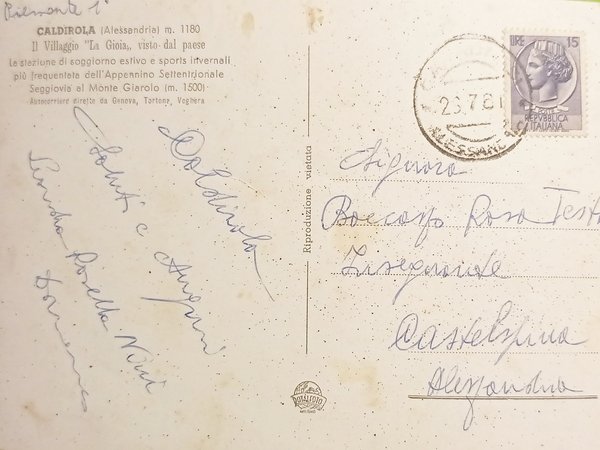 Piemonte 1°
CALDIROLA (Alessandria) m. 1180
Il Villaggio "La Gioia„ visto dal paese
La stazione di soggiorno estivo e sports invernali
più frequentata dell'Appennino Settentrionale
Seggiovia al Monte Giarolo (m. 1500)
Autocorriere dirette da Genova, Tortona, Voghera
Caldirola
Saluti e Auguri
Rosella Nini
Riproduzione vietata
LIRE 15
REPVBBLICA
ITALIANA
ALESSAND
Signora
Rosa Testa
Insegnante
Castelspina
Alessandria